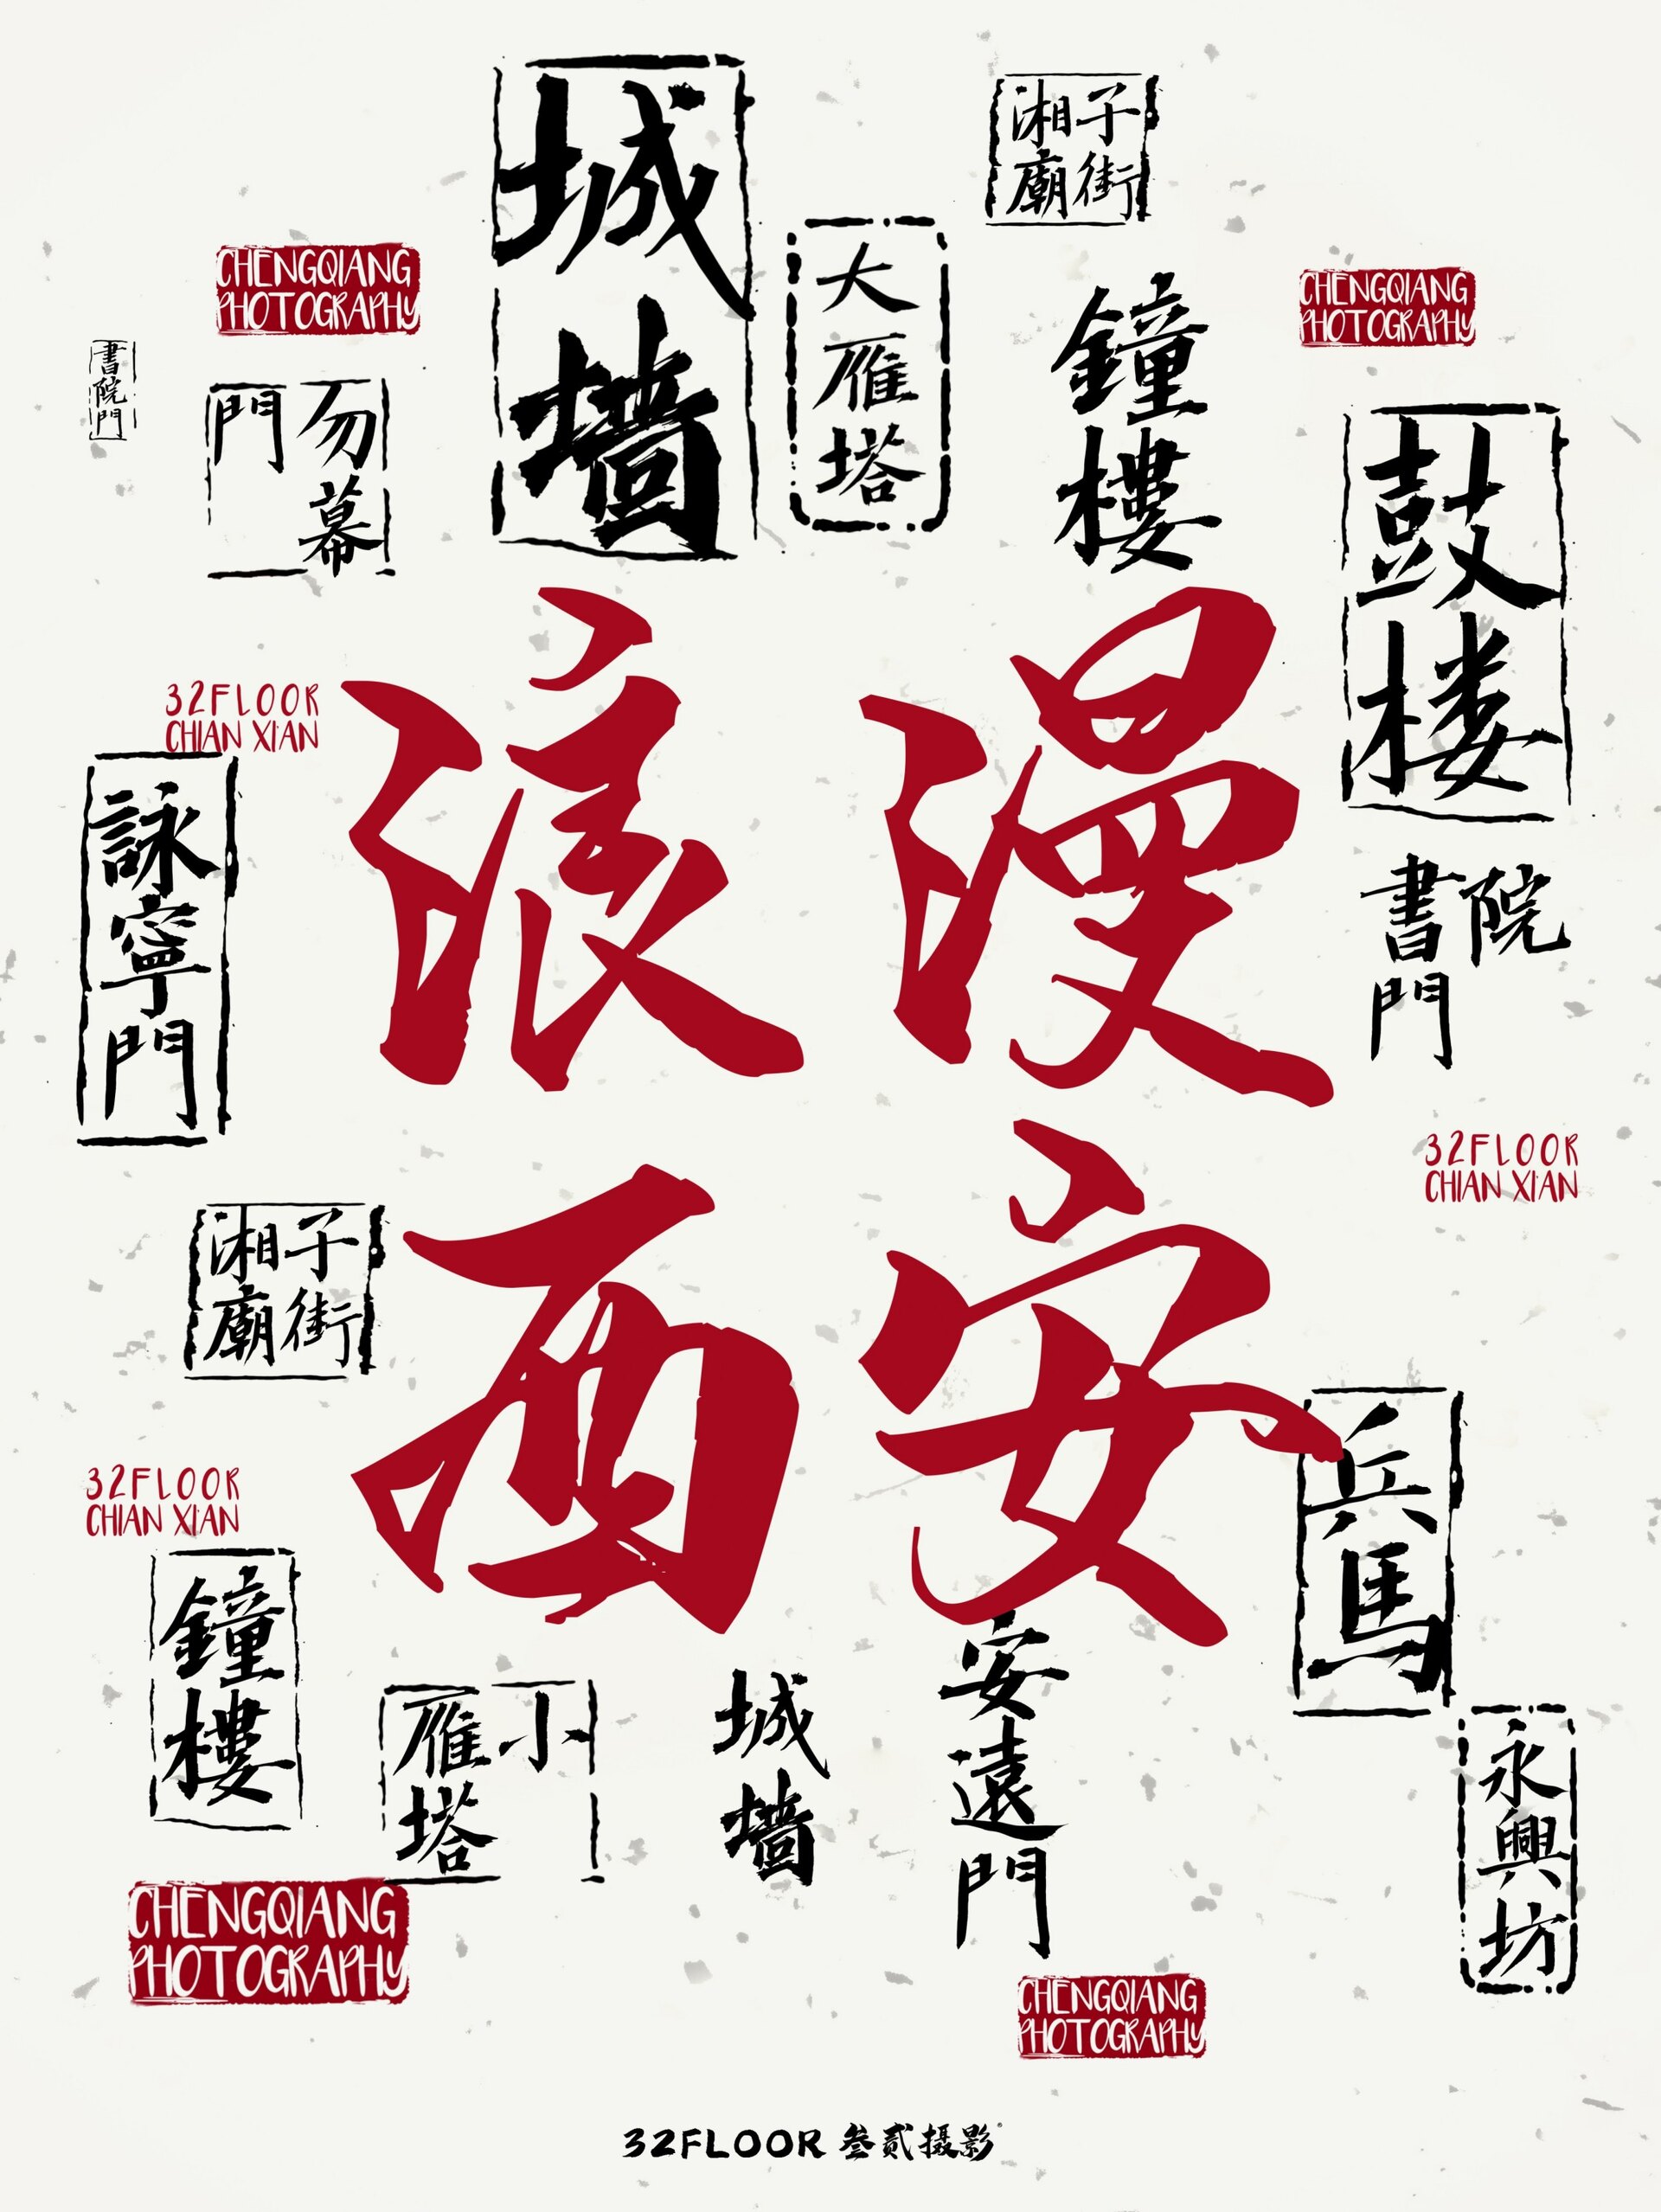 城墙
湘子
廟街
大雁塔
CHENGQIANG
PHOTOGRAPHY
CHENGQIANG
PHOTOGRAPHY
鐘樓
書院門
勿幕
門
鼓楼
浪漫
32FLOOR
CHIAN XIAN
詠寧門
書院
門
32FLOOR
CHIAN XIAN
西安
湘子
廟街
兵馬
32FLOOR
CHIAN XIAN
鐘樓
小
雁塔
城墙
安遠門
永興坊
CHENGQIANG
PHOTOGRAPHY
CHENGQIANG
PHOTOGRAPHY
32FLOOR 叁贰摄影